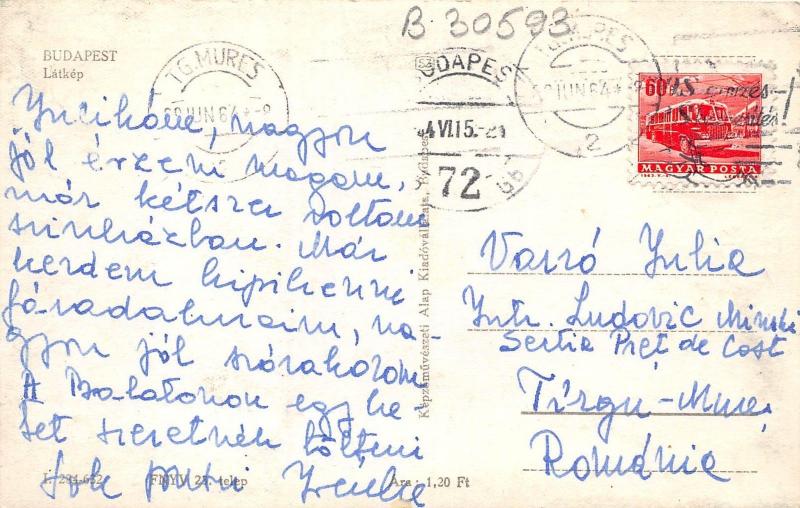 B 30593
BUDAPEST
Látkép
TG. MUREȘ
JUN 64
BUDAPEST
72
TG. MUREȘ
JUN 64
2
60f
MAGYAR POSTA
Jucikám, nagyon
jól érzem magam,
már kétszer voltam
színházban. Már
kezdem kipihenni
fáradalmaim, na-
gyon jól szórakozom
A Balatonon egy he-
tet szeretnék tölteni
Sok puszi
Képzőművészeti Alap Kiadóvállalata, Budapest
Varró Julia
Intr. Ludovic Minski
Secția Preț de Cost
Tîrgu-Mureș
România
FNYV 23. telep
Ára: 1,20 Ft